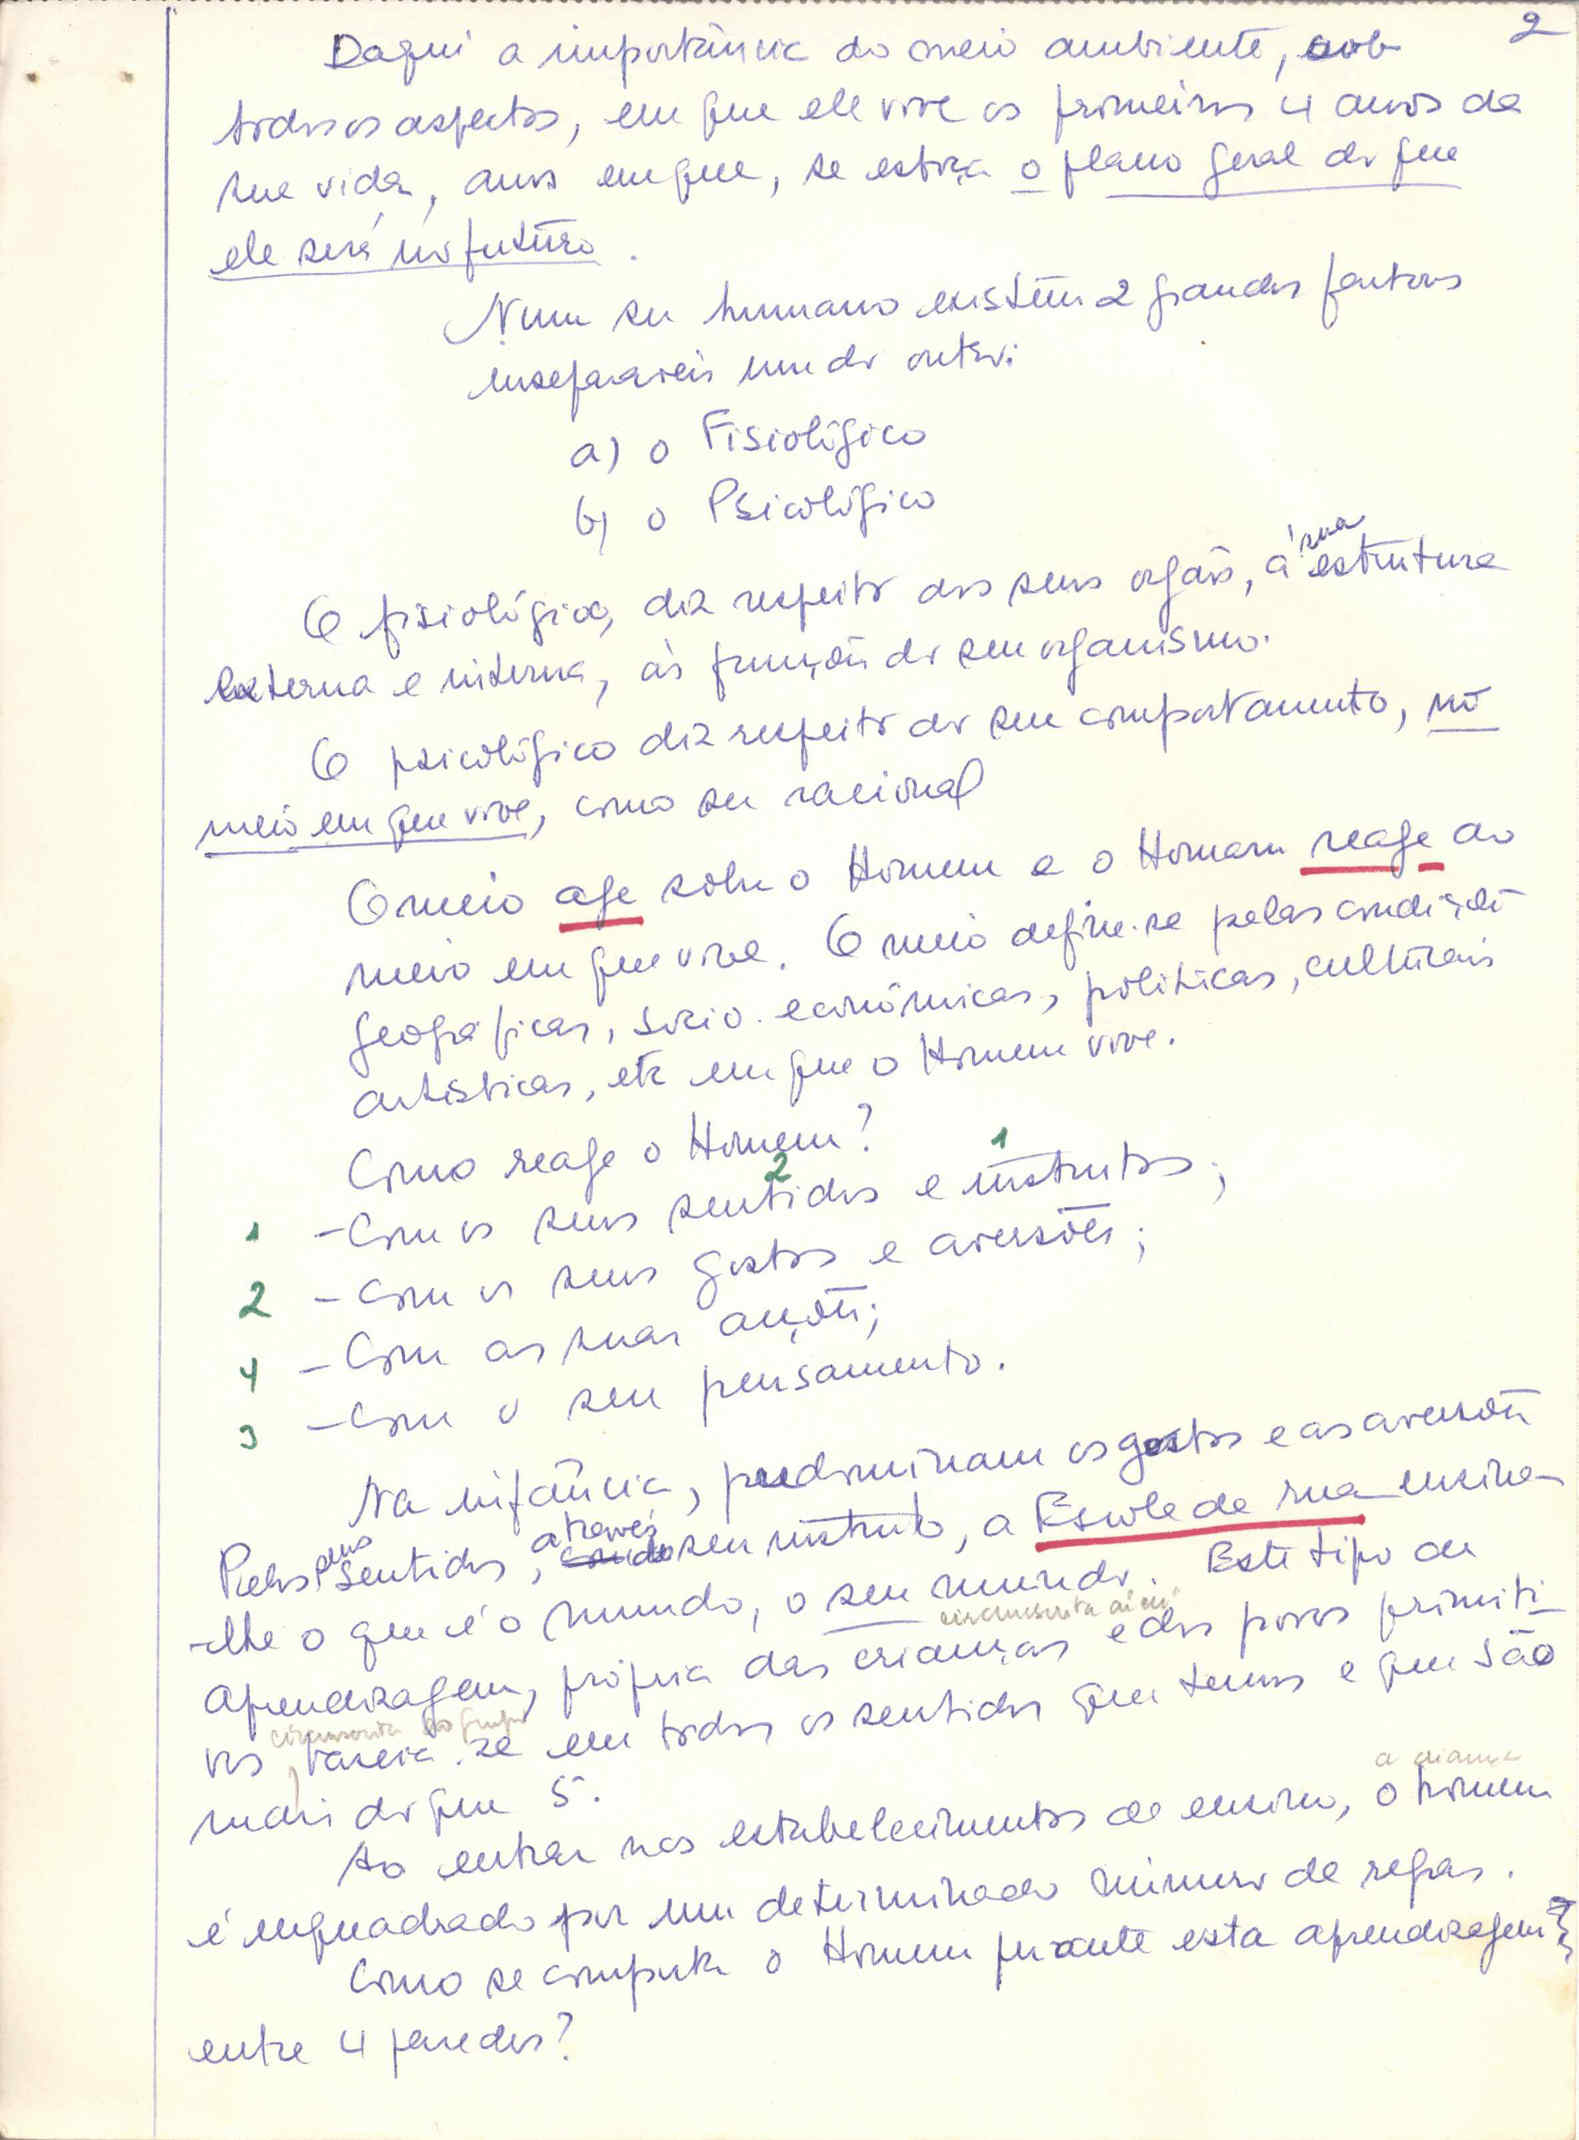 2
Daqui a importância do meio ambiente, sob
todos os aspectos, em que ele vive os primeiros 4 anos da
sua vida, anos em que, se esboça o plano geral do que
ele será no futuro.
Num ser humano existem 2 grandes factores
inseparáveis um do outro:
a) o Fisiológico
b) o Psicológico
O fisiológico, diz respeito aos seus orgãos, à sua estrutura
externa e interna, às funções do seu organismo.
O psicológico diz respeito ao seu comportamento, no
meio em que vive, como ser racional
O meio age sobre o Homem e o Homem reage ao
meio em que vive. O meio define-se pelas condições
geográficas, socio-económicas, políticas, culturais
artísticas, etc em que o Homem vive.
Como reage o Homem?
1 - Com os seus sentidos 2 e instintos 1;
2 - Com os seus gostos e aversões;
4 - Com as suas acções;
3 - Com o seu pensamento.
Na infância, predominam os gostos e as aversões
Pelos seus sentidos, através do seu instinto, a Escola da rua ensina-
-lhe o que é o mundo, o seu mundo. Este tipo de
aprendizagem, própria das crianças e dos povos primiti-
vos, circunscrita ao grupo baseia-se em todos os sentidos que temos e que são
mais do que 5.
Ao entrar nos estabelecimentos de ensino, o homem a criança
é enquadrado por um determinado número de regras.
Como se comporta o Homem perante esta aprendizagem
entre 4 paredes?